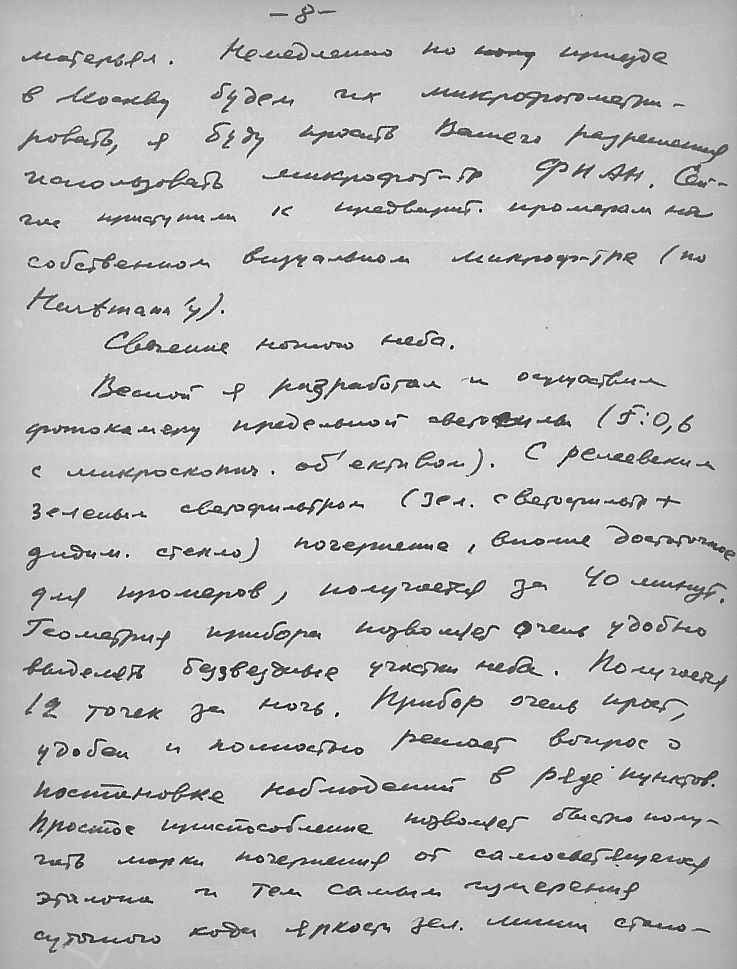 -8-
матерьял. Немедленно по приезде
в Москву будем их микрофотометри-
ровать, я буду просить Вашего разрешения
использовать микрофот-тр ФИАН. Сей-
час приступили к предварит. промерам на
собственном визуальном микроф-тре (по
Hartmann'у).
Свечение ночного неба.
Весной я разработал и осуществил
фотокамеру предельной светосилы (F:0,6
с микроскопич. об'ективом). С релеевским
зеленым светофильтром (зел. светофильтр +
дидим. стекло) почернение, вполне достаточное
для промеров, получается за 40 минут.
Геометрия прибора позволяет очень удобно
выделять беззвездные участки неба. Получается
12 точек за ночь. Прибор очень прост,
удобен и полностью решает вопрос о
постановке наблюдений в ряде пунктов.
Простое приспособление позволяет быстро полу-
чать марки почернения от самосветящегося
эталона и тем самым измерения
суточного хода яркости зел. линии стано-